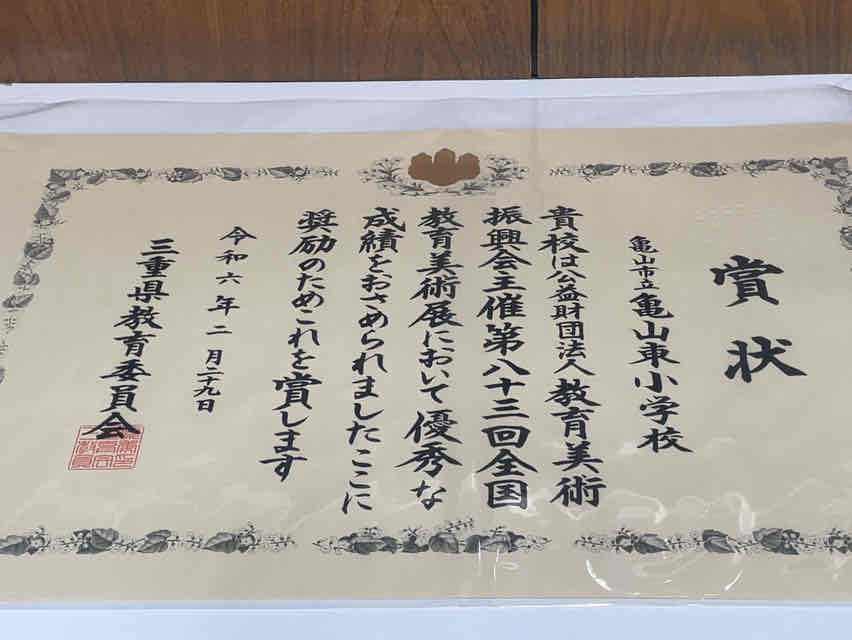 賞状
亀山市立亀山東小学校
貴校は公益財団法人教育美術
振興会主催第八十三回全国
教育美術展において優秀な
成績をおさめられましたここに
奨励のためこれを賞します
令和六年二月二十九日
三重県教育委員会